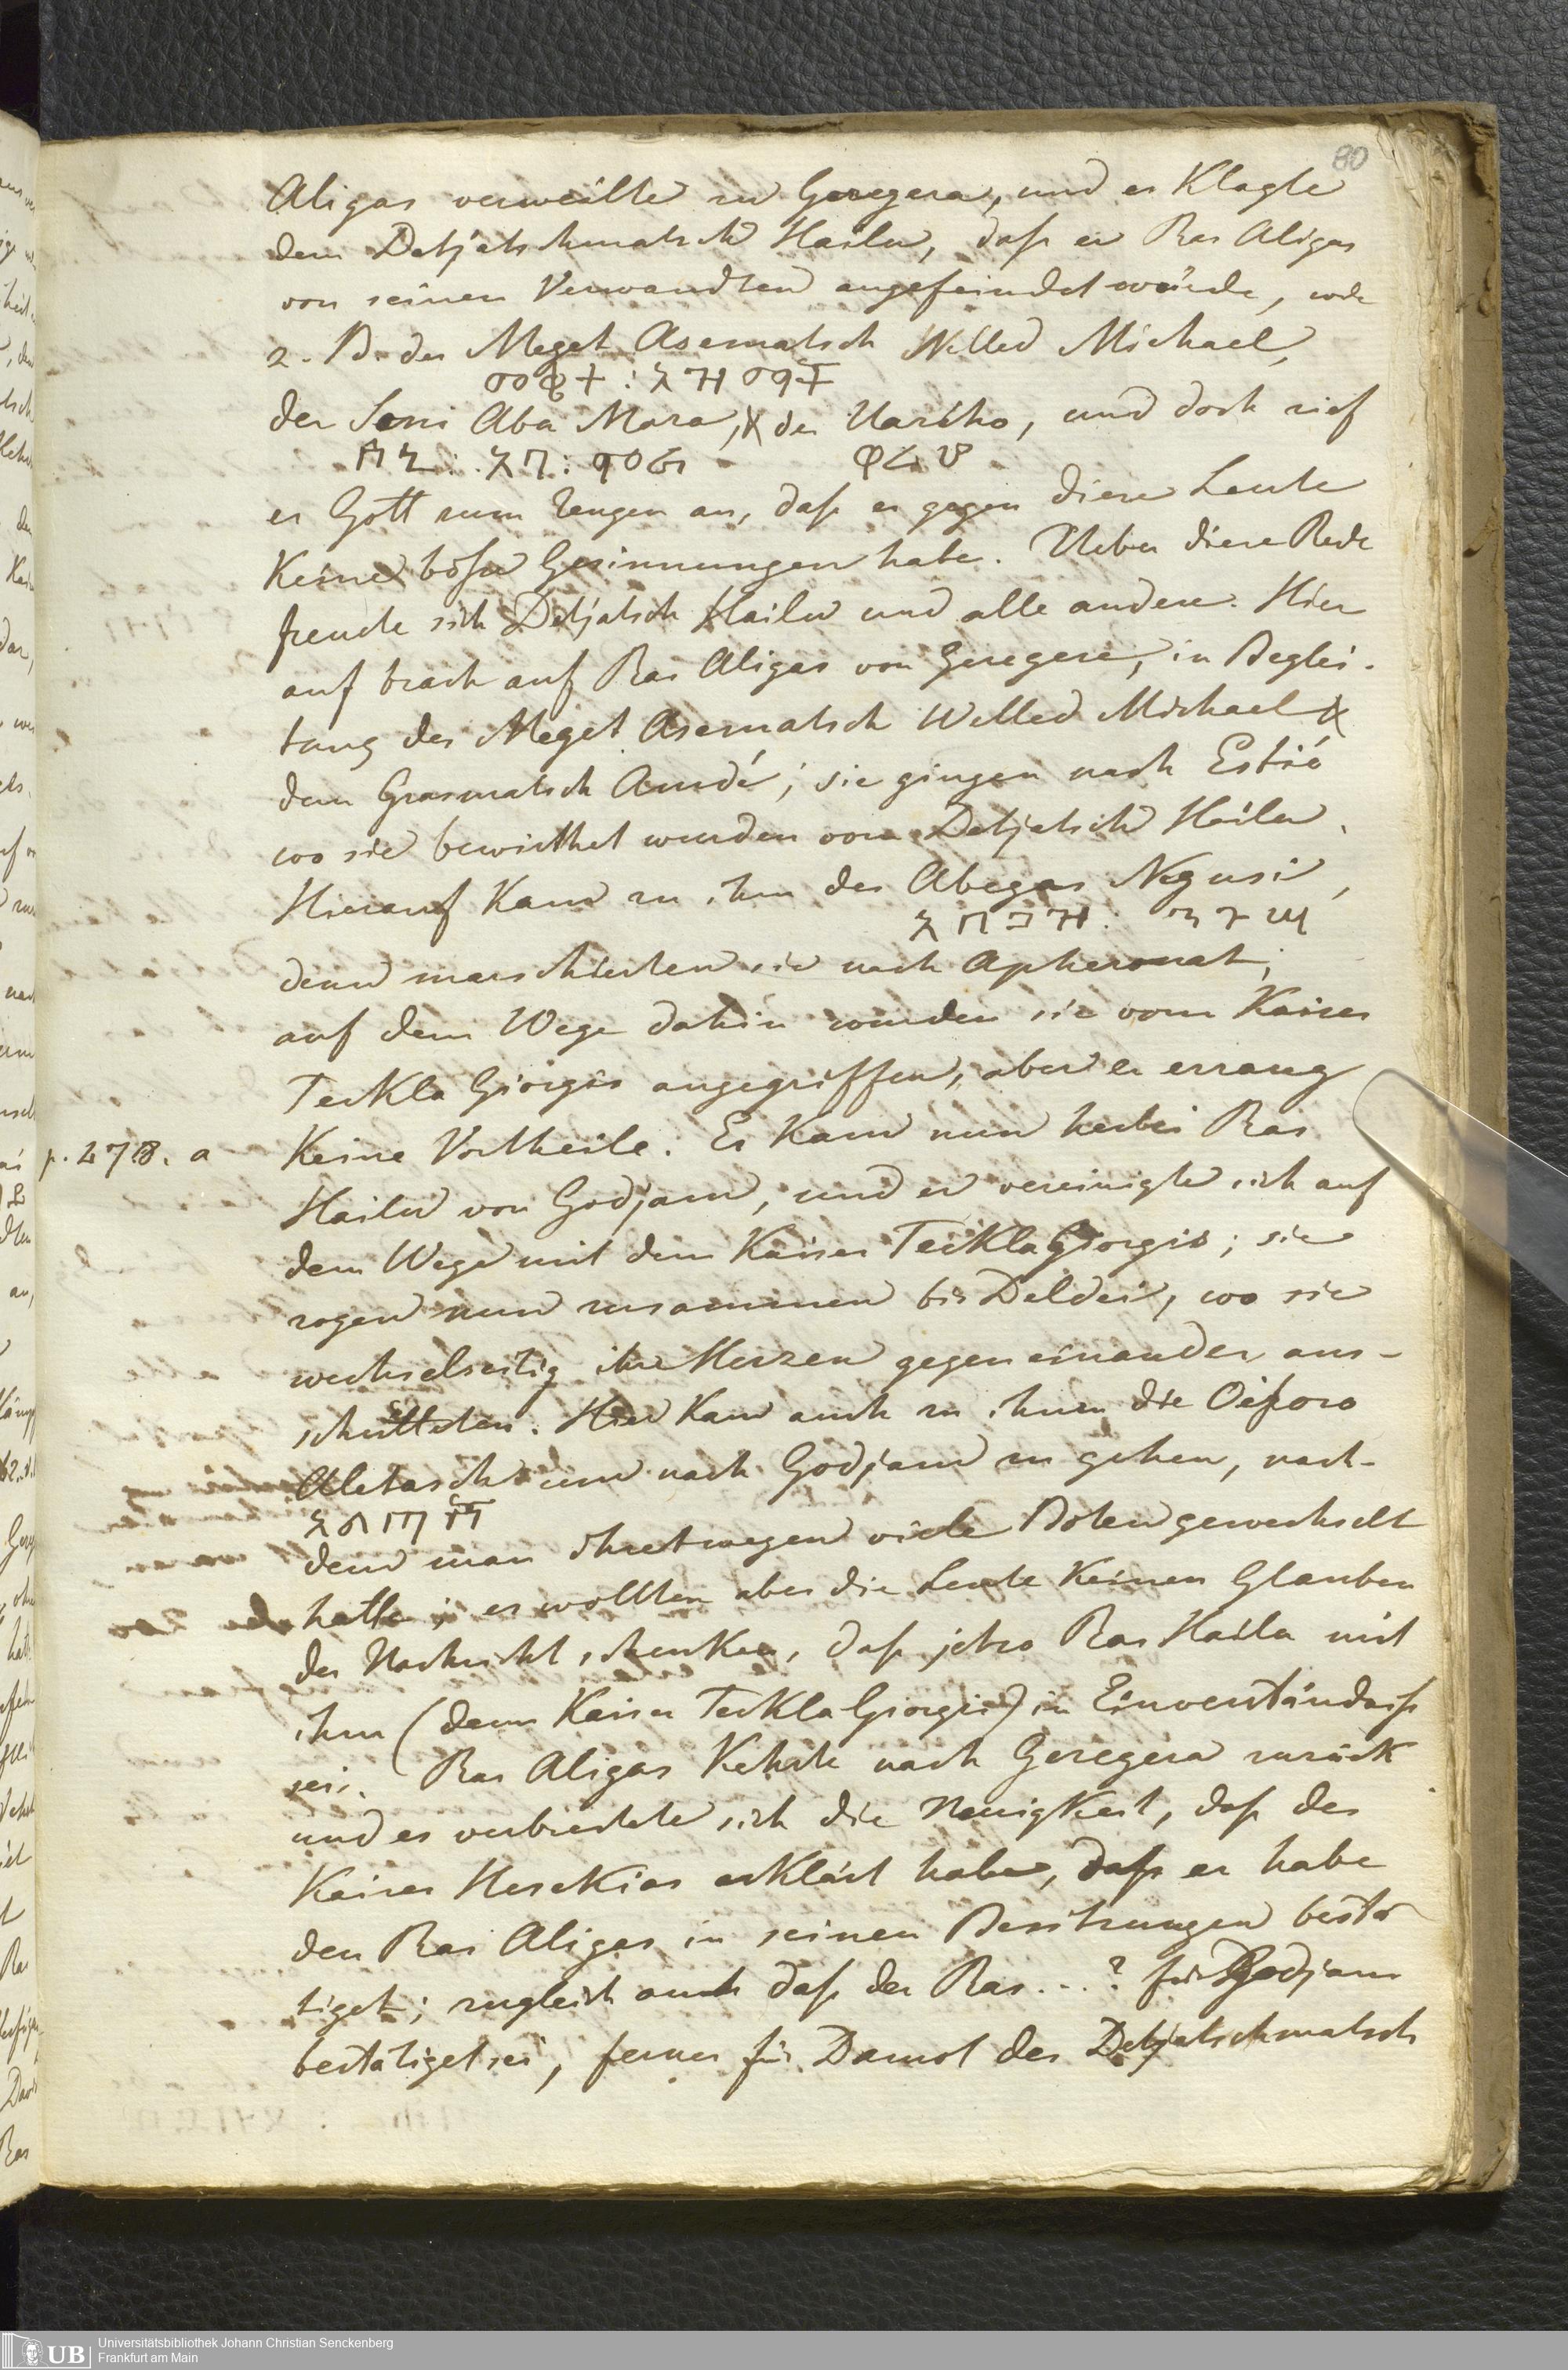 80
Aligas verweilte zu Geregera, und er Klagte
dem Detjatschmatsch Hailu, daß er Ras Aligas
von seinen Verwandten angefeindet würde, wie
z. B. der Meget Asematsch Welled Michael,
መቌት : አዛማች
der Seni Aba Mara, der Uariho, und doch rief
er Gott zum Zeugen an, daß er gegen diese Leute
Keine böse Gesinnungen habe. Ueber diese Rede
freute sich Detjatsch Hailu und alle andere. Hier
auf brach auf Ras Aligas von Geregera, in Beglei-
tung des Meget Asematsch Welled Michael &
dem Grasmatsch Amdé; sie gingen nach Estié
wo sie bewirthet wurden vom Detjatsch Hailu.
Hierauf Kam zu ihm der Abegas Negusi,
አቤጋዝ : ንጉሤ
denn marschierten sie nach Apheronat;
auf dem Wege dahin wurden sie vom Kaiser
Teckla Giorgis angegriffen, aber er errang
p. 478. a Keine Vortheile. Es Kam nun herbei Ras
Hailu von Godjam, und er vereinigte sich auf
dem Wege mit dem Kaiser Teckla Giorgis; sie
zogen nun zusammen bis Deldei, wo sie
wechselseitig ihre Herzen gegen einander aus-
schütteten. Hier Kam auch zu ihnen die Oisoro
Aletasch um nach Godjam zu gehen, nach-
dem man ihretwegen viele Boten gewechselt
hatte; es wollten aber die Leute Keinen Glauben
der Nachricht schenken, daß jetzo Ras Hailu mit
ihm (dem Kaiser Teckla Giorgis) in Einverständniß
sei. Ras Aligas Kehrte nach Geregera zurück
und es verbreitete sich die Neuigkeit, daß der
Kaiser Hesekias erklärt habe, daß er habe
den Ras Aligas in seinen Besitzungen bestä
tiget; zugleich auch daß der Ras ...? für Godjam
bestätiget sei, ferner für Damot der Detjatschmatsch
UB Universitätsbibliothek Johann Christian Senckenberg
Frankfurt am Main